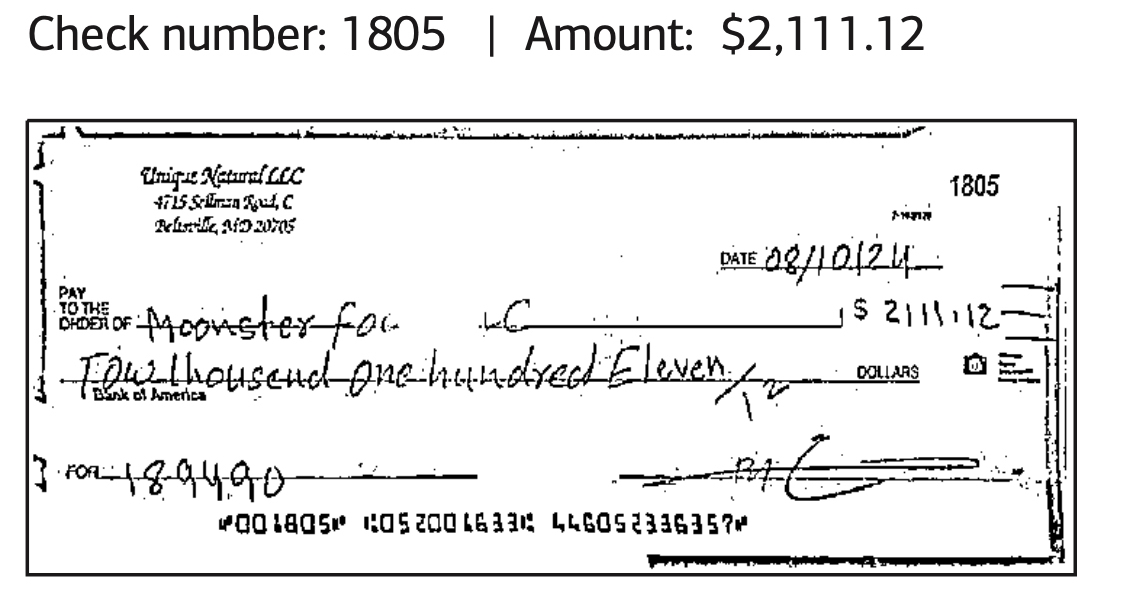 Check number: 1805 | Amount: $2,111.12
Unique Natural LLC
4715 Sellman Road, C
Beltsville, MD 20705
1805
DATE 08/10/24
PAY
TO THE
ORDER OF Moonster Foo LC $ 2111.12
Tow thousend one hundred Eleven /12 DOLLARS
Bank of America
FOR 189490
⑈001805⑈ ⑆052001633⑆ 446052336357⑈